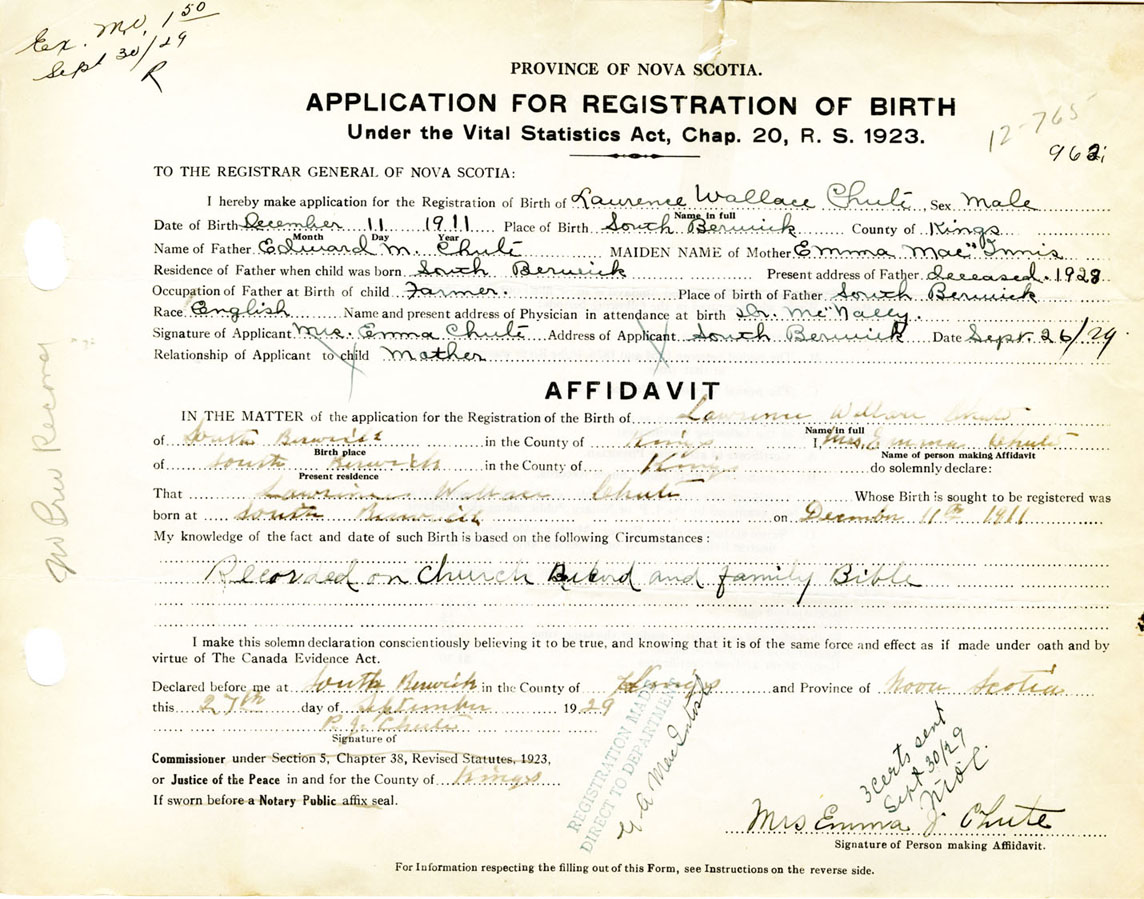 Ex. M.O. 1 50
Sept 30/29
R
PROVINCE OF NOVA SCOTIA.
APPLICATION FOR REGISTRATION OF BIRTH
Under the Vital Statistics Act, Chap. 20, R. S. 1923.
12-765
962
TO THE REGISTRAR GENERAL OF NOVA SCOTIA:
I hereby make application for the Registration of Birth of Laurence Wallace Chute, Sex Male
Name in full
Date of Birth December 11 1911 Place of Birth South Berwick County of Kings
Month Day Year
Name of Father Edward M. Chute MAIDEN NAME of Mother Emma Mac"Innis
Residence of Father when child was born South Berwick Present address of Father deceased. 1928
Occupation of Father at Birth of child Farmer. Place of birth of Father South Berwick
Race English Name and present address of Physician in attendance at birth Dr. Mc"Nally.
Signature of Applicant Mrs. Emma Chute Address of Applicant South Berwick Date Sept. 26/29
Relationship of Applicant to child Mother
AFFIDAVIT
IN THE MATTER of the application for the Registration of the Birth of Lawrence Wallace Chute
Name in full
of South Berwick in the County of Kings I, Mrs, Emma Chute
Birth place Name of person making Affidavit
of South Berwick in the County of Kings do solemnly declare:
Present residence
That Lawrence Wallace Chute Whose Birth is sought to be registered was
born at South Berwick on December 11th 1911
My knowledge of the fact and date of such Birth is based on the following Circumstances :
Recorded on Church Record and family Bible
I make this solemn declaration conscientiously believing it to be true, and knowing that it is of the same force and effect as if made under oath and by
virtue of The Canada Evidence Act.
Declared before me at South Berwick in the County of Kings and Province of Nova Scotia
this 27th day of September 1929
P. J. Chute
Signature of
Commissioner under Section 5, Chapter 38, Revised Statutes, 1923,
or Justice of the Peace in and for the County of Kings
If sworn before a Notary Public affix seal.
REGISTRATION MADE
DIRECT TO DEPARTMENT
G A MacIntosh
3 certs sent
Sept 30/29
Mrs Emma J. Chute
Signature of Person making Affidavit.
For Information respecting the filling out of this Form, see Instructions on the reverse side.
No Prev Record